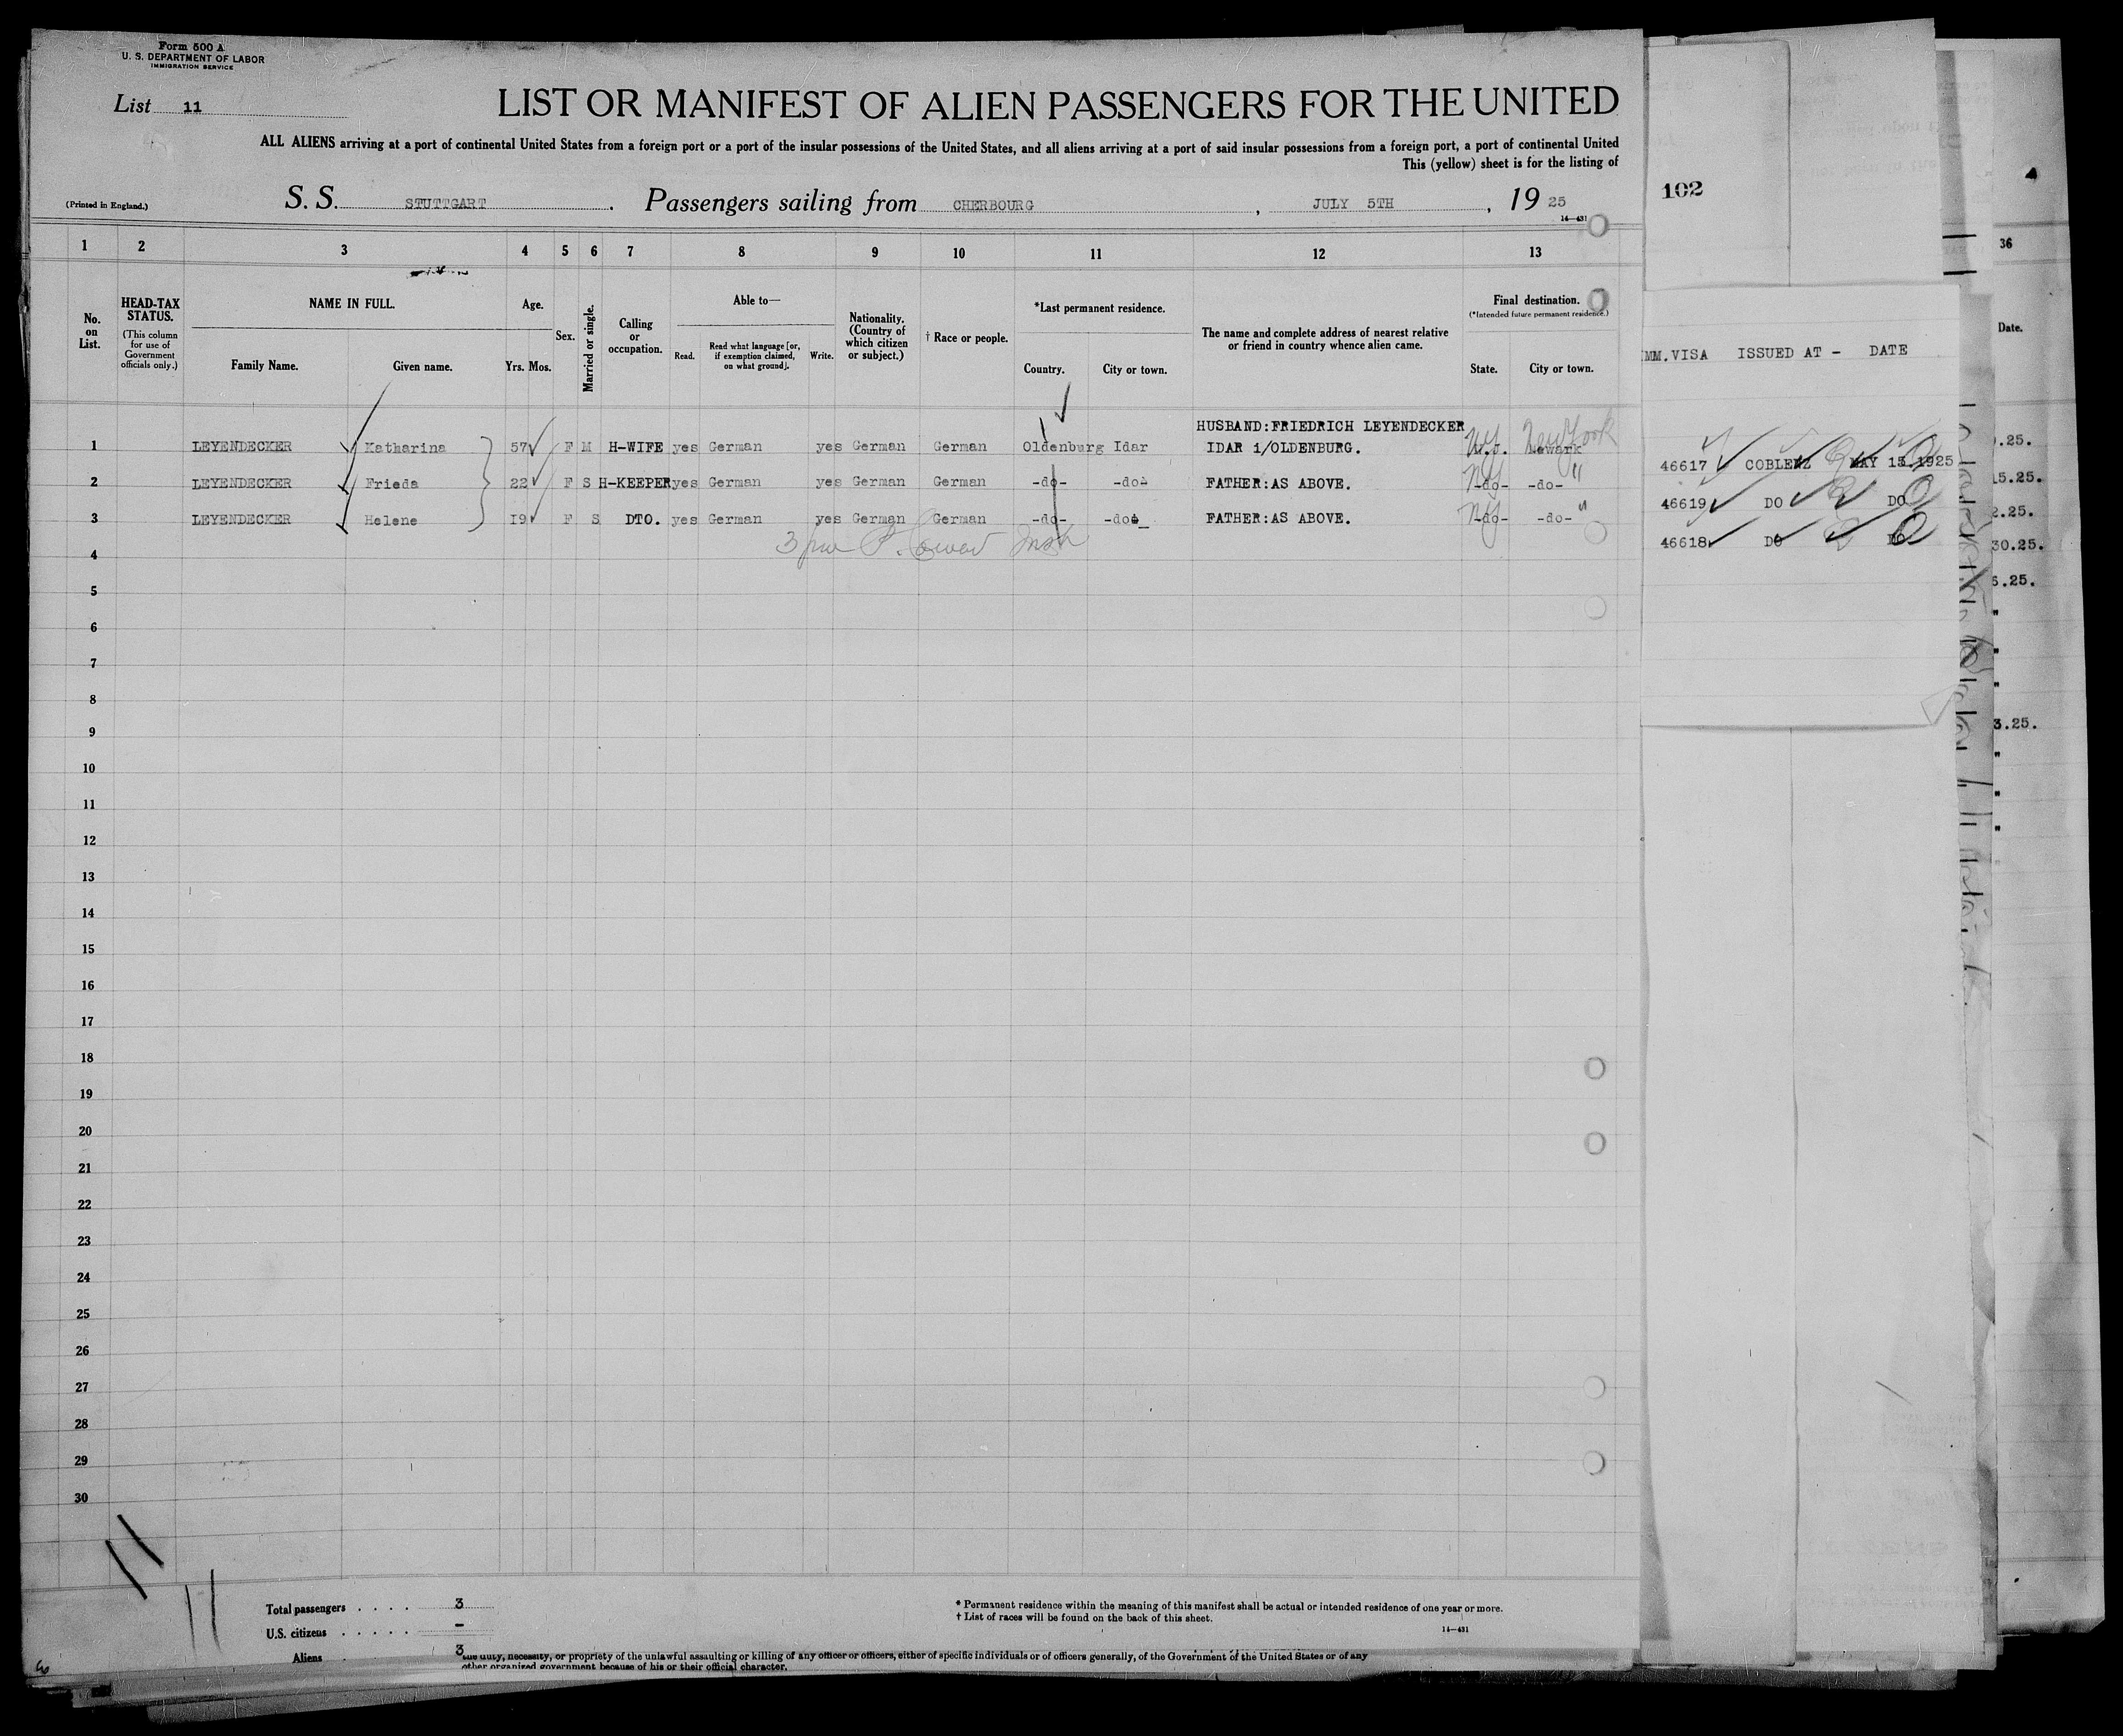 Form 500 A
U. S. DEPARTMENT OF LABOR
IMMIGRATION SERVICE
List 11
LIST OR MANIFEST OF ALIEN PASSENGERS FOR THE UNITED
ALL ALIENS arriving at a port of continental United States from a foreign port or a port of the insular possessions of the United States, and all aliens arriving at a port of said insular possessions from a foreign port, a port of continental United
This (yellow) sheet is for the listing of
(Printed in England.)
S. S. STUTTGART. Passengers sailing from CHERBOURG, JULY 5TH, 1925
14—431
102
1 2 3 4 5 6 7 8 9 10 11 12 13
36
No. on List.
HEAD-TAX STATUS.
(This column for use of Government officials only.)
NAME IN FULL.
Family Name. Given name.
Age.
Yrs. Mos.
Sex.
Married or single.
Calling or occupation.
Able to—
Read. Read what language [or, if exemption claimed, on what ground]. Write.
Nationality. (Country of which citizen or subject.)
† Race or people.
*Last permanent residence.
Country. City or town.
The name and complete address of nearest relative or friend in country whence alien came.
Final destination.
(*Intended future permanent residence.)
State. City or town.
IMM.VISA ISSUED AT - DATE
Date.
HUSBAND:FRIEDRICH LEYENDECKER
1 LEYENDECKER Katharina 57 F M H-WIFE yes German yes German German Oldenburg Idar IDAR i/OLDENBURG. NY New York Newark
46617 COBLENZ MAY 15 1925
2 LEYENDECKER Frieda 22 F S H-KEEPER yes German yes German German -do- -do- FATHER:AS ABOVE. NY -do- -do- "
46619 DO DO
3 LEYENDECKER Helene 19 F S DTO. yes German yes German German -do- -do- FATHER:AS ABOVE. NY -do- -do- "
46618 DO DO
4
5
6
7
8
9
10
11
12
13
14
15
16
17
18
19
20
21
22
23
24
25
26
27
28
29
30
.25.
15.25.
2.25.
30.25.
5.25.
"
"
"
3.25.
"
"
"
Total passengers . . . . 3
U.S. citizens . . . . . -
Aliens . 3
* Permanent residence within the meaning of this manifest shall be actual or intended residence of one year or more.
† List of races will be found on the back of this sheet.
14—431
the duty, necessity, or propriety of the unlawful assaulting or killing of any officer or officers, either of specific individuals or of officers generally, of the Government of the United States or of any
other organized government because of his or their official character.